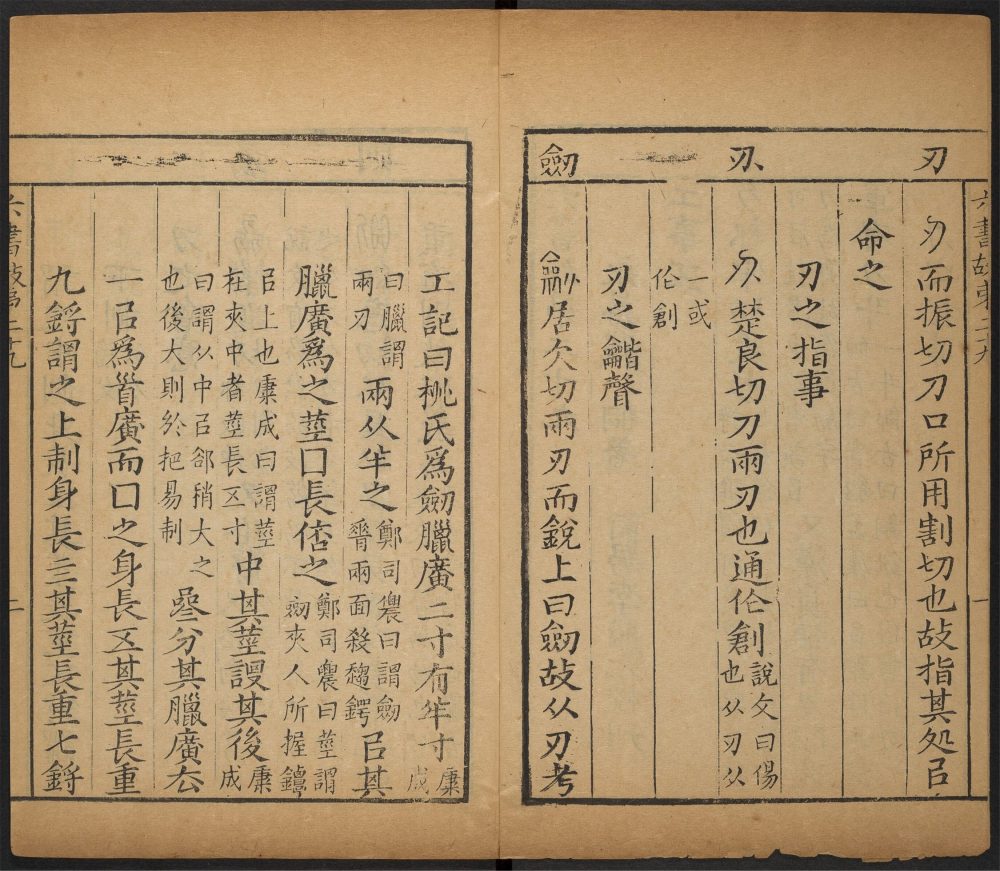 六書故弟二十九
刃
刅
劒
刃而振切刀口所用割切也故指其処㠯
命之
刃之指事
刅楚良切刀兩刃也通作創
說文曰傷
也从刃从
一或
作創
刃之龤聲
劒居欠切兩刃而銳上曰劒故从刃考
工記曰桃氏爲劒臘廣二寸有半寸
康
成
曰臘謂
兩刃
兩从半之
鄭司農曰謂劒
脊兩面殺趨鍔
㠯其
臘廣爲之莖囗長倍之
鄭司農曰莖謂
劒夾人所握鐔
㠯上也康成曰謂莖
在夾中者莖長五寸
中其莖設其後
康
成
曰謂从中㠯郤稍大之
也後大則於把易制
參分其臘廣厺
一㠯爲首廣而囗之身長五其莖長重
九鋝謂之上制身長三其莖長重七鋝
六書故弟二十九
一
二